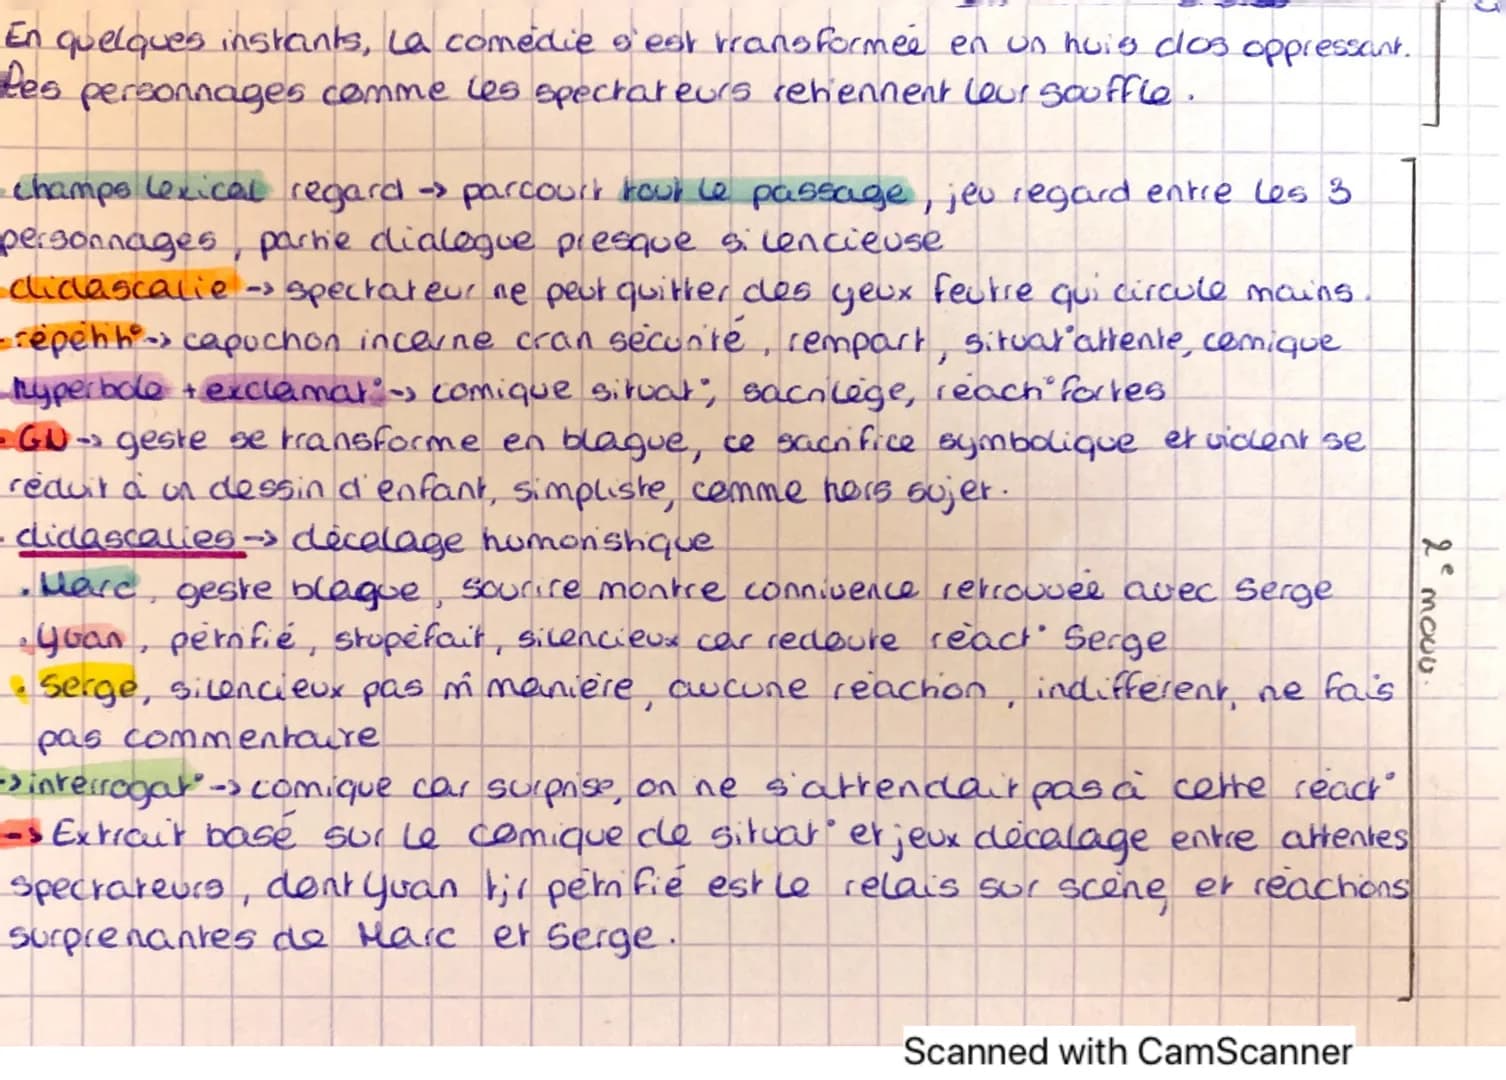 En quelques instants, la comédie s'est transformée en un huis clos oppressant.
Les personnages comme les spectateurs retiennent leur souffle.
champs lexical regard -> parcourt tout le passage, jeu regard entre les 3
personnages, partie dialogue presque silencieuse
-didascalie -> spectateur ne peut quitter des yeux feutre qui circule mains.
-répétit° -> capuchon incarne cran sécurité, rempart, situat° attente, comique
hyperbole + exclamat° -> comique situat°, sacrilège, réact° fortes
-GN -> geste se transforme en blague, ce sacrifice symbolique et violent se
réduit à un dessin d'enfant, simpliste, comme hors sujet.
- didascalies -> décalage humoristique
. Marc, geste blague, sourire montre connivence retrouvée avec Serge
. Yvan, pétrifié, stupéfait, silencieux car redoute réact° Serge
. Serge, silencieux pas m̂ manière, aucune réaction, indifférent, ne fais
pas commentaire
-> interrogat° -> comique car surprise, on ne s'attendait pas à cette réact°
-> Extrait basé sur le comique de situat° et jeux décalage entre attentes
spectateurs, dont Yvan tjr pétrifié est le relais sur scène, et réactions
surprenantes de Marc et Serge.
2e mouv.
Scanned with CamScanner